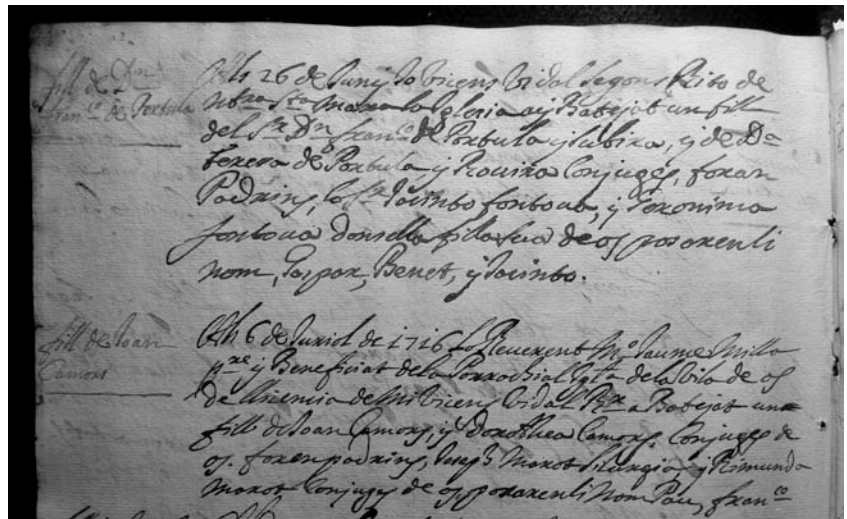 fill de Dn
Franco de Portula
Als 26 de Juny Jo Vicens Vidal segons Rito de
Nbra Sta Mara la Iglesia ay Batejat un fill
del Sr Dn Franco de Portula y Subira, y de Da
Teresa de Portula y Rovira Conjuges, foran
Padrins, lo Sr Jacinto fontova, y Geronima
fontova donsella filla sua de os posarenli
nom, Gaspar, Benet, y Jacinto.
fill de Joan
Camors
Als 6 de Juriol de 1716 lo Reverent Mo Jaume Milla
pre y Beneficiat de la Parrochial Igla de la Vila de os
de llicencia de mi Vicens Vidal Rr a Batejat un
fill de Joan Camors, y Dorothea Camors Conjuges de
os. foren padrins, Joseph Marot Sirurgia y Rimunda
Marot Conjuges de os posarenli nom Pau, Franco